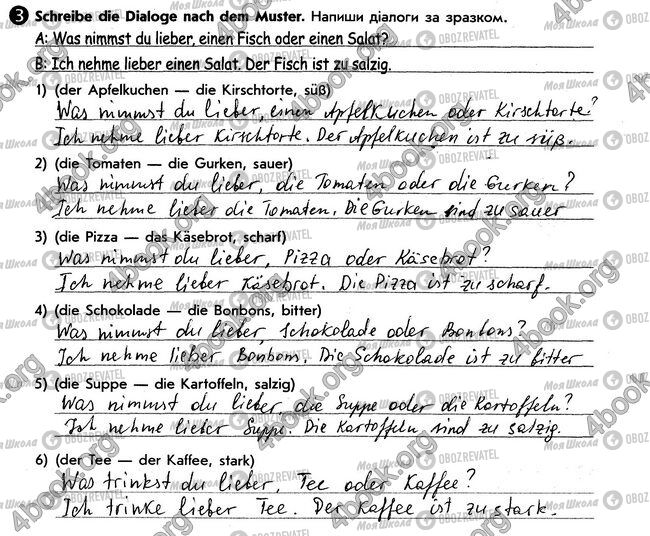 3 Schreibe die Dialoge nach dem Muster. Напиши діалоги за зразком.
A: Was nimmst du lieber, einen Fisch oder einen Salat?
B: Ich nehme lieber einen Salat. Der Fisch ist zu salzig.
1) (der Apfelkuchen — die Kirschtorte, süß)
Was nimmst du lieber, einen Apfelkuchen oder Kirschtorte?
Ich nehme lieber Kirschtorte. Der Apfelkuchen ist zu süß.
2) (die Tomaten — die Gurken, sauer)
Was nimmst du lieber, die Tomaten oder die Gurken?
Ich nehme lieber die Tomaten. Die Gurken sind zu sauer
3) (die Pizza — das Käsebrot, scharf)
Was nimmst du lieber, Pizza oder Käsebrot?
Ich nehme lieber Käsebrot. Die Pizza ist zu scharf.
4) (die Schokolade — die Bonbons, bitter)
Was nimmst du lieber, Schokolade oder Bonbons?
Ich nehme lieber Bonbons. Die Schokolade ist zu bitter
5) (die Suppe — die Kartoffeln, salzig)
Was nimmst du lieber, die Suppe oder die Kartoffeln?
Ich nehme lieber Suppe. Die Kartoffeln sind zu salzig.
6) (der Tee — der Kaffee, stark)
Was trinkst du lieber, Tee oder Kaffee?
Ich trinke lieber Tee. Der Kaffee ist zu stark.
4book.org
Моя Школа
OBOZREVATEL